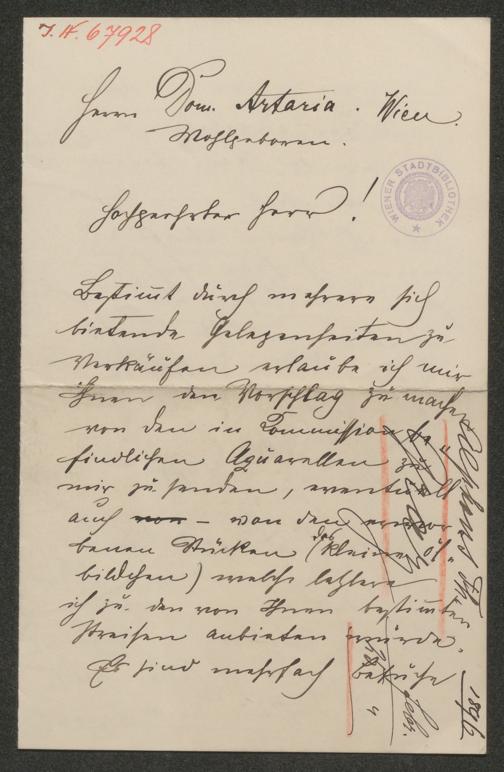 I. N. 67928
Herrn Dom. Artaria. Wien.
Wohlgeboren.
WIENER STADTBIBLIOTHEK
Hochgeehrter Herr!
Bestimmt durch mehrere sich
bietende Gelegenheiten zu
Verkäufen erlaube ich mir
Ihnen den Vorschlag zu machen
von den in Commission be-
findlichen Aquarellen
mir zu senden, eventuell
auch von – von den erwor
benen Stücken (das kleine Öl-
bildchen) welche letztere
ich zu den von Ihnen bestimmten
Preisen anbieten würde.
Es sind mehrfach Besuche
1896